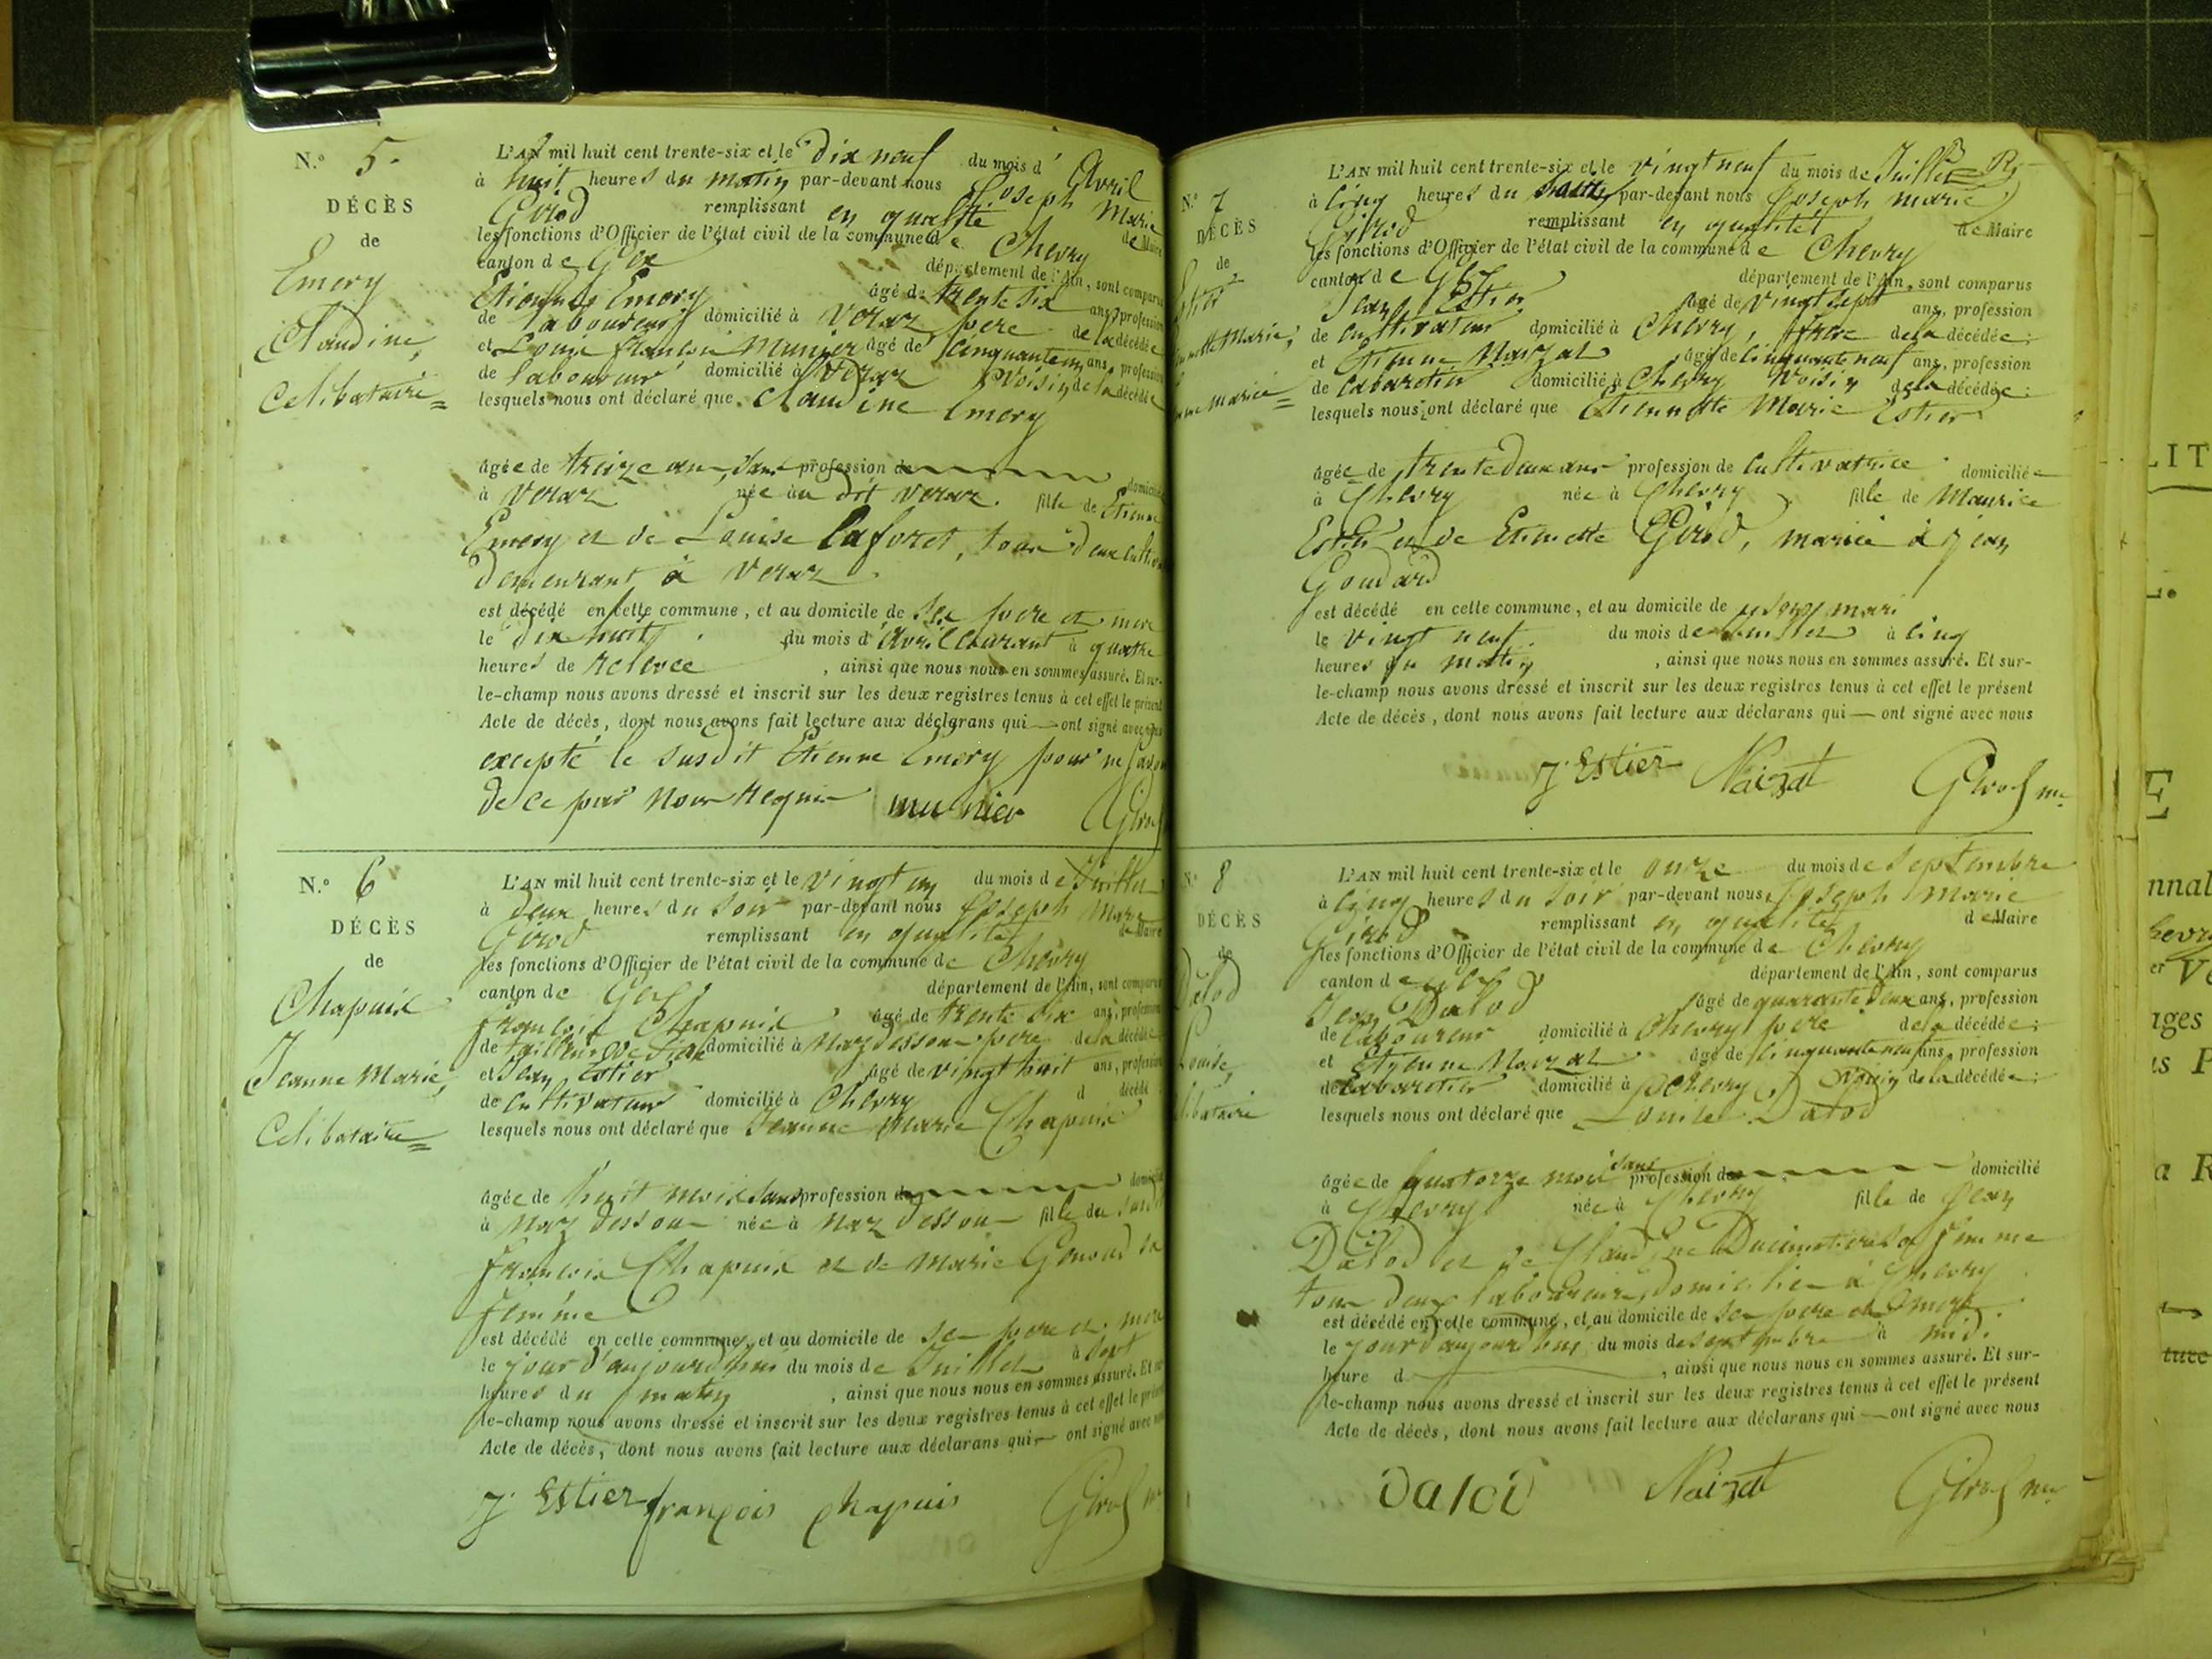 N.° 5.
DÉCÈS
de
Emery
Claudine,
Celibataire
L'AN mil huit cent trente-six et le dix neuf du mois d' Avril
à huit heures du matin par-devant nous Joseph Marie
Girod remplissant en qualité de Maire
les fonctions d'Officier de l'état civil de la commune de Chevry
canton de Gex département de l'Ain, sont comparus
Etienne Emery âgé de trente six ans, profession
de laboureur domicilié à Veraz pere de la décédée
et Louis françois Munier âgé de cinquante un ans, profession
de laboureur domicilié à Veraz Voisin de la décédée
lesquels nous ont déclaré que Claudine Emery
âgée de treize ans, sans profession de
à Veraz née au dit Veraz. fille de Etienne
Emery et de Louise Laforet, tous deux
demeurant à Veraz
est décédé en cette commune, et au domicile de ses pere et mere
le dix huit du mois d'Avril Courant à quatre
heures de relevée, ainsi que nous nous en sommes assuré. Et sur-
le-champ nous avons dressé et inscrit sur les deux registres tenus à cet effet le présent
Acte de décès, dont nous avons fait lecture aux déclarans qui — ont signé avec nous
excepté le susdit Etienne Emery pour ne savoir
de ce par Nous Requis munier Girod
N.° 6
DÉCÈS
de
Chapuis
Jeanne Marie,
Celibataire
L'AN mil huit cent trente-six et le vingt un du mois de Juillet
à deux heures du soir par-devant nous Joseph Marie
Girod remplissant en qualité de Maire
les fonctions d'Officier de l'état civil de la commune de Chevry
canton de Gex département de l'Ain, sont comparus
françois Chapuis âgé de trente six ans, profession
de domicilié à Naz dessous pere de la décédée
et Jean Estier âgé de vingt huit ans, profession
de Cultivateur domicilié à Chevry d décédé
lesquels nous ont déclaré que Jeanne Marie Chapuis
âgée de huit mois sans profession de
à Naz dessous née à Naz dessous fille du
françois Chapuis et de Marie Gonod sa
femme
est décédé en cette commune, et au domicile de ses pere et mere
le jour d'aujourdhui du mois de Juillet à Sept
heures du matin, ainsi que nous nous en sommes assuré. Et sur-
le-champ nous avons dressé et inscrit sur les deux registres tenus à cet effet le présent
Acte de décès, dont nous avons fait lecture aux déclarans qui — ont signé avec nous
J Estier françois chapuis Girod
N.° 7
DÉCÈS
de
L'AN mil huit cent trente-six et le vingt neuf du mois de Juillet
à cinq heures du par-devant nous Joseph marie
Girod remplissant en qualité de Maire
les fonctions d'Officier de l'état civil de la commune de Chevry
canton de Gex département de l'Ain, sont comparus
Jean Estier âgé de vingt sept ans, profession
de Cultivateur domicilié à Chevry, frere de la décédée;
et Etienne Naizat âgé de cinquante neuf ans, profession
de Cabaretier domicilié à Chevry Voisin de la décédée;
lesquels nous ont déclaré que Etiennette Marie Estier
âgée de trente deux ans profession de Cultivatrice domiciliée
à Chevry née à Chevry fille de Maurice
Estier et de Etiennette Girod, mariée à Jean
Goudard
est décédé en cette commune, et au domicile de mari
le vingt neuf du mois de Juillet à cinq
heures du matin, ainsi que nous nous en sommes assuré. Et sur-
le-champ nous avons dressé et inscrit sur les deux registres tenus à cet effet le présent
Acte de décès, dont nous avons fait lecture aux déclarans qui — ont signé avec nous
J Estier Naizat Girod
N.° 8
DÉCÈS
de
Dalod
Louise,
L'AN mil huit cent trente-six et le onze du mois de Septembre
à cinq heures du soir par-devant nous Joseph Marie
Girod remplissant en qualité de Maire
les fonctions d'Officier de l'état civil de la commune de Chevry
canton de Gex département de l'Ain, sont comparus
Jean Dalod âgé de quarante deux ans, profession
de laboureur domicilié à Chevry pere de la décédée;
et Etienne Naizat âgé de cinquante neuf ans, profession
de Cabaretier domicilié à Chevry Voisin de la décédée;
lesquels nous ont déclaré que Louise Dalod
âgée de quatorze mois sans profession de domicilié
à Chevry née à Chevry fille de Jean
Dalod et de Claudine sa femme
tous deux laboureurs domiciliés à Chevry
est décédé en cette commune, et au domicile de ses pere et mere
le jour d'aujourdhui du mois de Septembre à midi
heure d, ainsi que nous nous en sommes assuré. Et sur-
le-champ nous avons dressé et inscrit sur les deux registres tenus à cet effet le présent
Acte de décès, dont nous avons fait lecture aux déclarans qui — ont signé avec nous
Dalod Naizat Girod